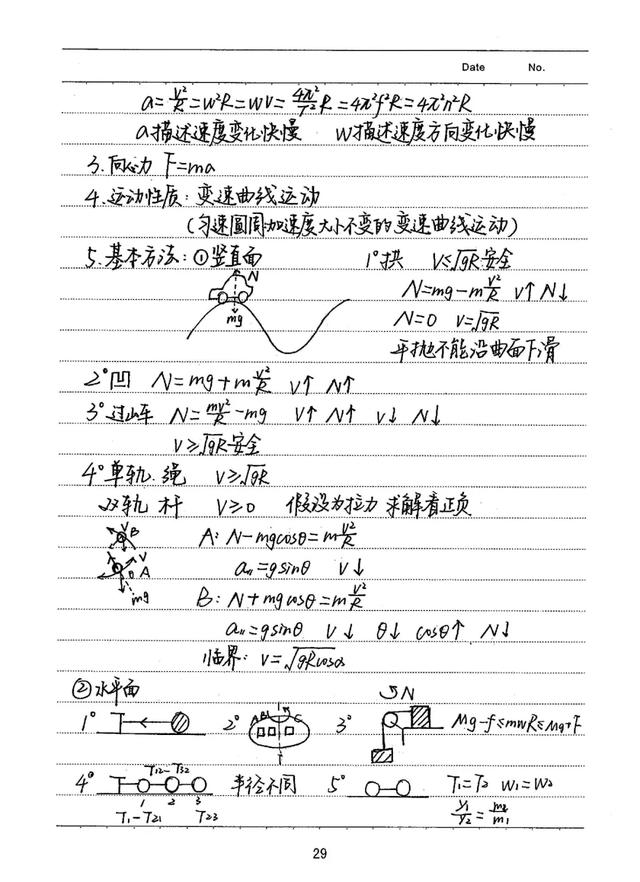 Date No.
a=v²/R=w²R=wv=4π²/T²R=4π²f²R=4π²n²R
a描述速度变化快慢 w描述速度方向变化快慢
3.向心力 F=ma
4.运动性质:变速曲线运动
(匀速圆周加速度大小不变的变速曲线运动)
5.基本方法:①竖直面 1°拱 v≤√gR安全
N
mg
N=mg-mv²/R v↑N↓
N=0 v=√gR
平抛不能沿曲面下滑
2°凹 N=mg+mv²/R v↑ N↑
3°过山车 N=mv²/R-mg v↑ N↑ v↓ N↓
v≥√gR安全
4°单轨.绳 v≥√gR
双轨 杆 v≥0 假设为拉力 求解看正负
V B
V θ A
mg
A: N-mgcosθ=mv²/R
a∥=gsinθ v↓
B: N+mgcosθ=mv²/R
a∥=gsinθ v↓ θ↓ cosθ↑ N↓
临界: v=√gRcosα
②水平面
1° 2° A B C 3° N Mg-f≤mwR≤Mg+F
4° T12-T32 半径不同 5° T1=T2 w1=w2
1 2 3
T1-T21 T23 r1/r2=m2/m1
29